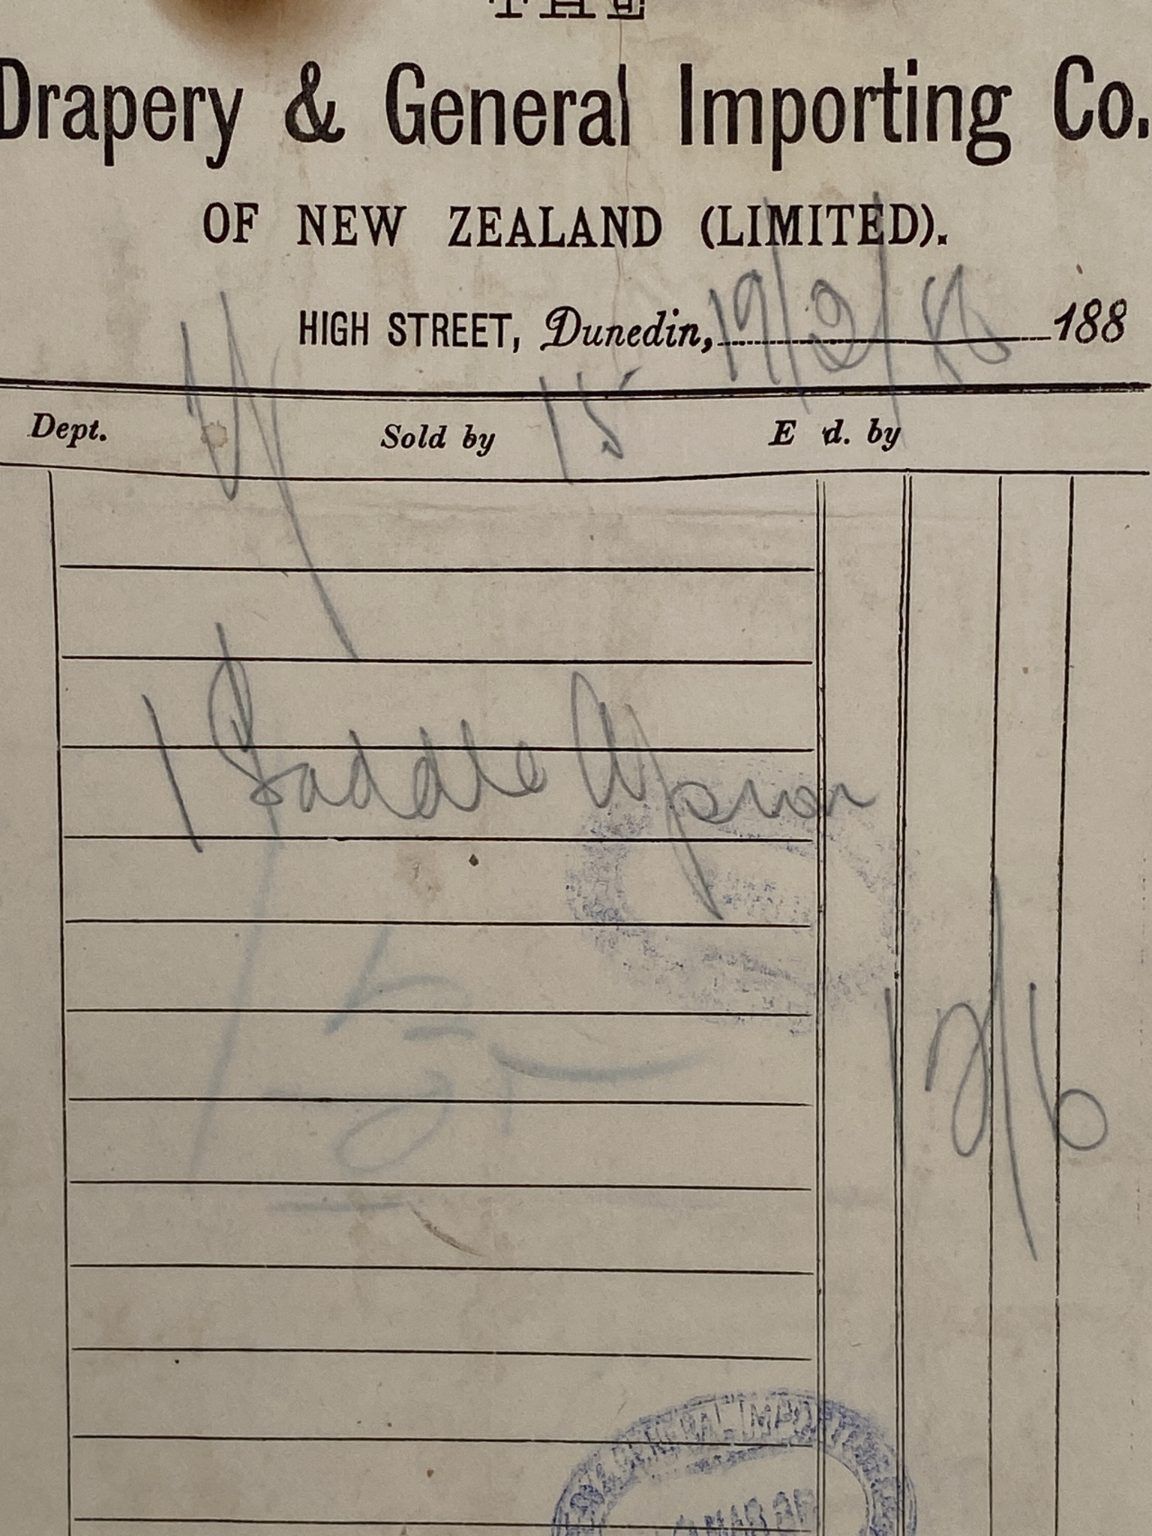 THE
Drapery & General Importing Co.
OF NEW ZEALAND (LIMITED).
HIGH STREET, Dunedin, 19/2/86 188
Dept. Sold by 15 E d. by
1 Saddle Apron
12/6